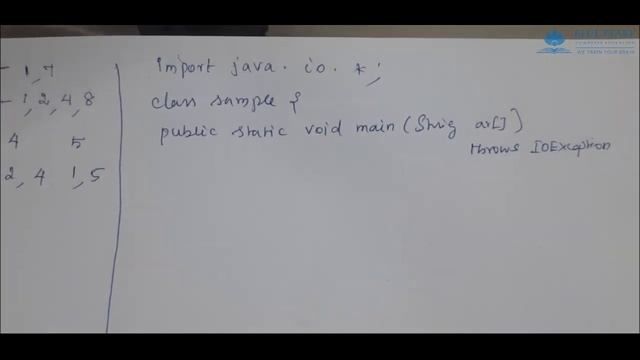 - 1, 7
- 1, 2, 4, 8
4 5
2, 4 1, 5
import java.io.*;
class sample {
public static void main (String ar[])
throws IOException
BLUE PEARL
COMPUTER EDUCATION
WE TRAIN YOUR BRAIN